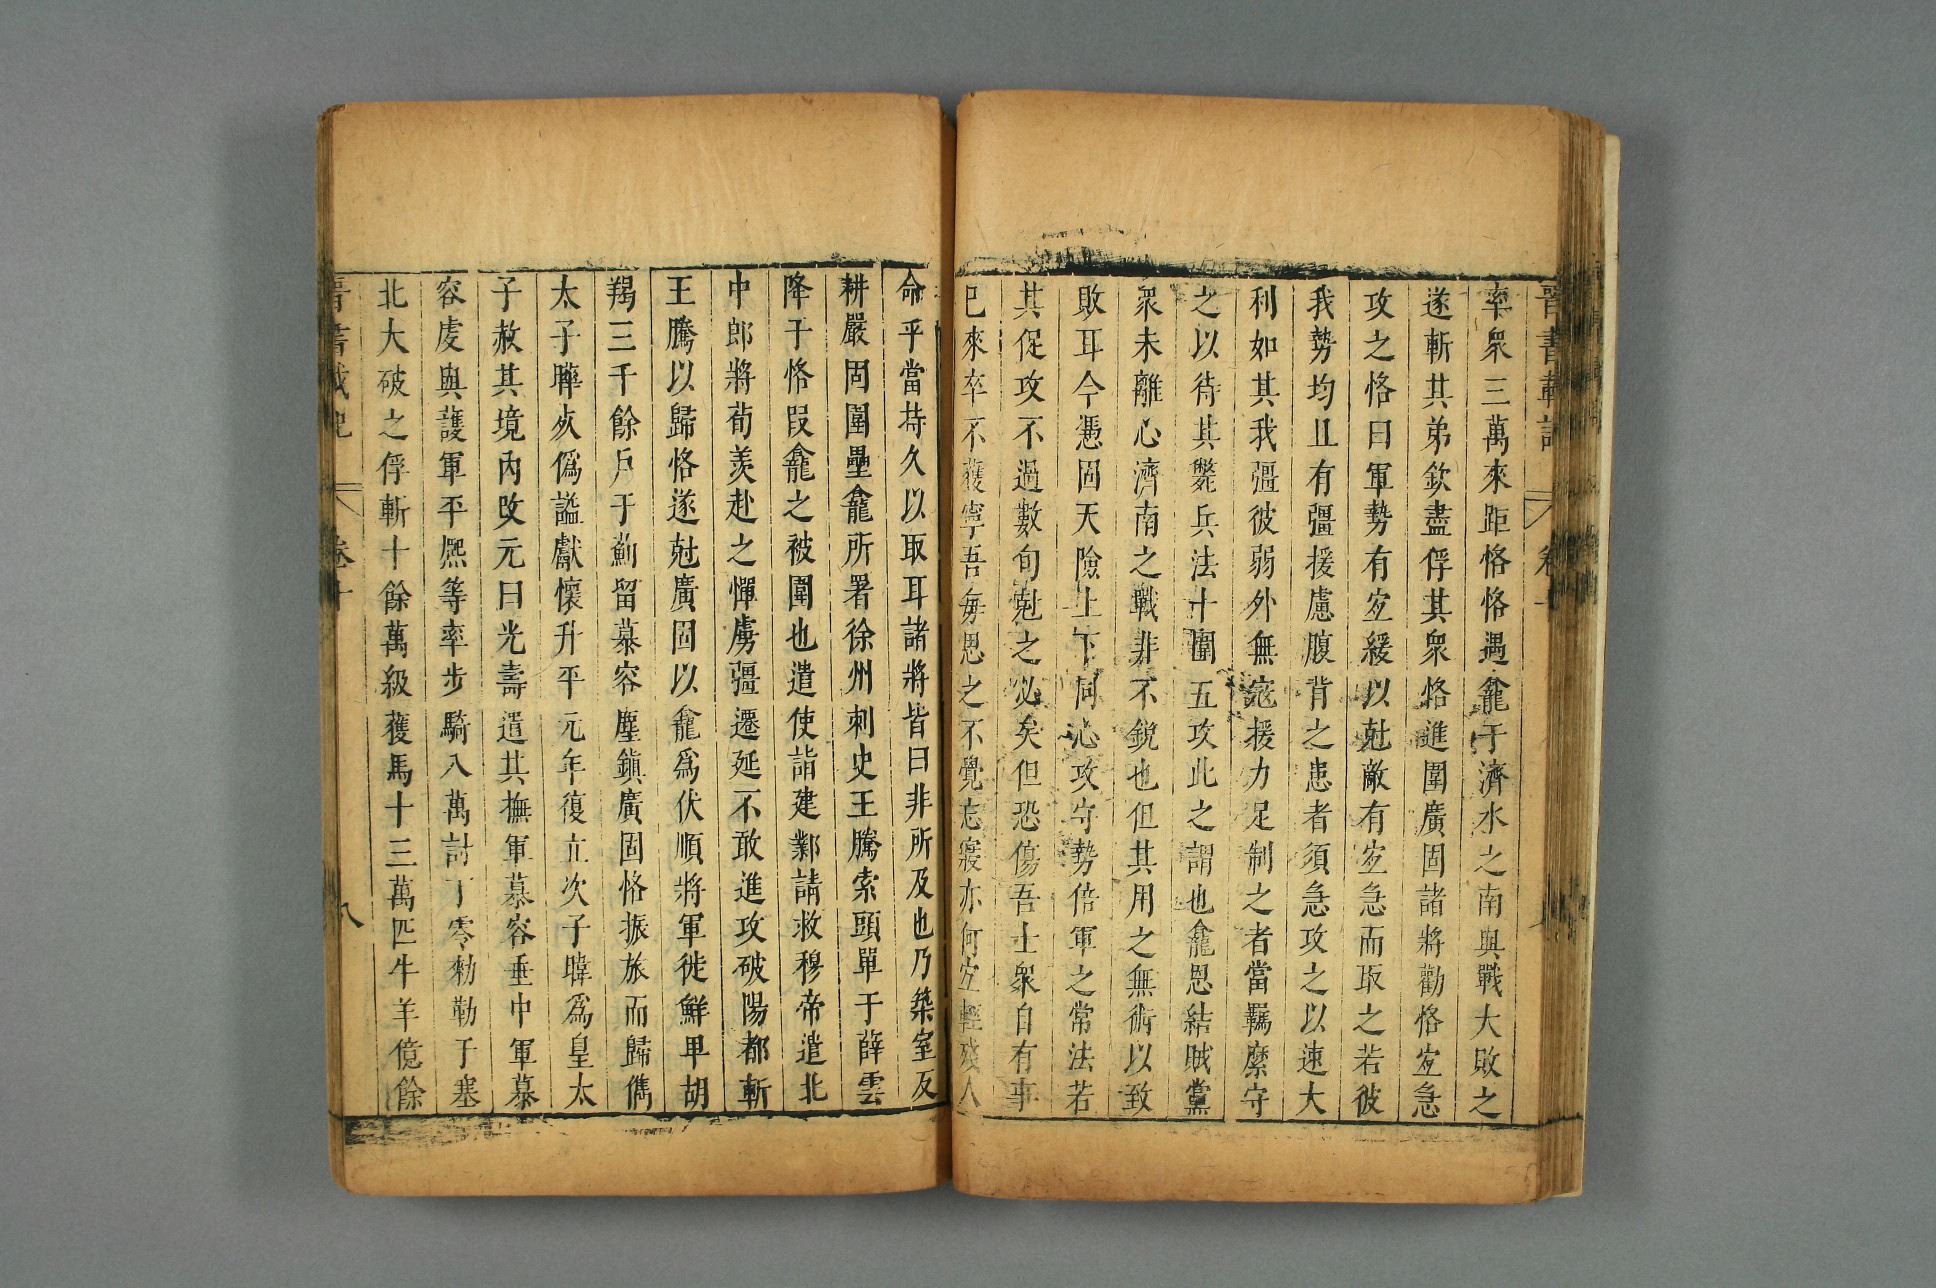 晉書載記
卷十
率衆三萬來距恪恪遇龕于濟水之南與戰大敗之
遂斬其弟欽盡俘其衆恪進圍廣固諸將勸恪宐急
攻之恪曰軍勢有宐緩以尅敵有宐急而取之若彼
我勢均且有彊援慮腹背之患者須急攻之以速大
利如其我彊彼弱外無寇援力足制之者當羈縻守
之以待其斃兵法十圍五攻此之謂也龕恩結賊黨
衆未離心濟南之戰非不銳也但其用之無術以致
敗耳今憑固天險上下同心攻守勢倍軍之常法若
其促攻不過數旬尅之必矣但恐傷吾士衆自有事
已來卒不獲寧吾每思之不覺忘寢亦何宐輕殘人
命乎當持久以取耳諸將皆曰非所及也乃築室反
耕嚴固圍壘龕所署徐州刺史王騰索頭單于薛雲
降于恪叚龕之被圍也遣使詣建鄴請救穆帝遣北
中郎將荀羨赴之憚虜彊遷延不敢進攻破陽都斬
王騰以歸恪遂尅廣固以龕爲伏順將軍徙鮮卑胡
羯三千餘戶于薊留慕容塵鎭廣固恪振旅而歸儁
太子曄死僞謚獻懷升平元年復立次子暐爲皇太
子赦其境內改元曰光壽遣其撫軍慕容垂中軍慕
容虔與護軍平熈等率步騎八萬討丁零勑勒于塞
北大破之俘斬十餘萬級獲馬十三萬匹牛羊億餘
晉書載記
卷十
八